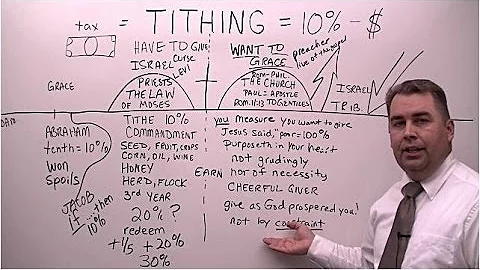 tax = TITHING = 10% - $
HAVE TO GIVE
ISRAEL curse
LEVI
PRIESTS
THE LAW
OF MOSES
WANT TO
GRACE
preacher
live of the gospel
Rom-Phil
THE CHURCH
PAUL = APOSTLE
ROM. 11:13 TO GENTILES
GRACE
ISRAEL
TRIB.
ABRAHAM
tenth = 10%
Won
Spoils
JACOB
If ... then
10%
TITHE 10%
COMMANDMENT
SEED, FRUIT, CROPS
CORN, OIL, WINE
HONEY
HERD, FLOCK
3rd YEAR
20% ?
redeem
+ 1/5 + 20%
30%
EARN
you measure you want to give
Jesus said, "poor = 100%
Purposeth in your heart
not grudingly
nor of necessity
CHEERFUL GIVER
give as God prospered you!
not by constraint